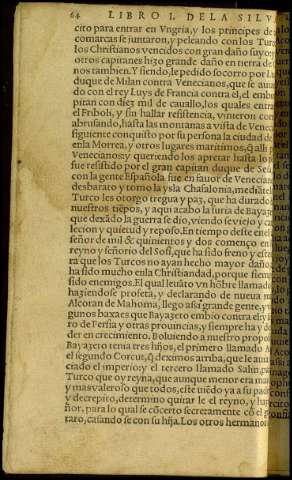 64 LIBRO I. DE LA SILV
cito para entrar en Vngria, y los principes de
comarcas se juntaron, y peleando con los Tur
los Christianos vencidos con gran daño suyo
otros capitanes hizo grande daño en tierra de
nos tambien. Y siendo, le pedido socorro por
duque de Milan contra Venecianos, que se auia
do con el rey Luys de Francia contra el, el embi
pitan con diez mil de cauallo, los quales entra
el Friboli, y sin hallar resistencia, vinieron con
abrasando, hasta las montañas a vista de Vene
siguiente conquisto por su persona la ciudad de
en la Morrea, y otros lugares maritimos, q̃
Venecianos: y queriendo los apretar hasta
fue resistido por el gran capitan duque de Sesa
con la gente Española fue en fauor de Venecian
desbarato y tomo la ysla Chafalonia, mediãte
Turco les otorgo tregua y paz, que ha durado
nuestros tiẽpos, y aqui acabo la furia de Bayaze
que dexado la guerra se dio, viendose viejo y
lecion y quietud y reposo. En tiempo deste en el
señor de mil & quinientos y dos començo en
reyno y señorio del Sofi, que ha sido freno y esto
ra que los Turcos no ayan hecho mayor daño
ha sido mucho en la Christiandad, porque siem
sido enemigos. El qual leuãto vn hõbre llamado
haziendose profeta, y declarando de nueua
Alcoran de Mahoma, llego assi grande gente, y
gunos baxaes que Bayazeto embio contra el
ro de Persia y otras prouincias, y siempre ha y
der en crecimiento. Boluiendo a nuestro propo
Bayazeto tenia tres hijos, el primero llamado
el segundo Corcut, q̃ deximos arriba, que le auia
ciado el imperio: y el tercero llamado Salin,
Turco que oy reyna, que aunque menor era mas
y mas valeroso que todos, este viẽdo ya a su pad
y decrepito, determino quitar le el reyno, y
ñor, para lo qual se cõcerto secretamente cõ el
taro, casando se con su hija. Los otros hermanos